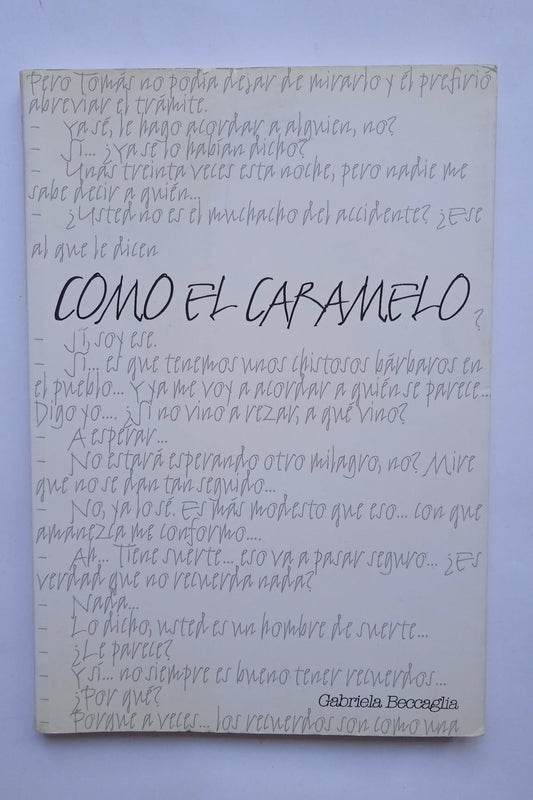 Pero Tomás no podía dejar de mirarlo y él prefirió
abreviar el trámite.
- Ya sé, le hago acordar a alguien, no?
- Sí... ¿Ya se lo habían dicho?
- Unas treinta veces esta noche, pero nadie me
sabe decir a quién...
- ¿Usted no es el muchacho del accidente? ¿Ese
al que le dicen
COMO EL CARAMELO?
- Sí, soy ese.
- Sí... es que tenemos unos chistosos bárbaros en
el pueblo... Y ya me voy a acordar a quién se parece...
Digo yo.... ¿Si no vino a rezar, a qué vino?
- A esperar...
- No estará esperando otro milagro, no? Mire
que no se dan tan seguido...
- No, ya lo sé. Es más modesto que eso... con que
amanezca me conformo....
- Ah... Tiene suerte... eso va a pasar seguro... ¿Es
verdad que no recuerda nada?
- Nada...
- Lo dicho, usted es un hombre de suerte...
- ¿Le parece?
- Y sí... no siempre es bueno tener recuerdos...
- ¿Por qué?
Gabriela Beccaglia
- Porque a veces... los recuerdos son como una